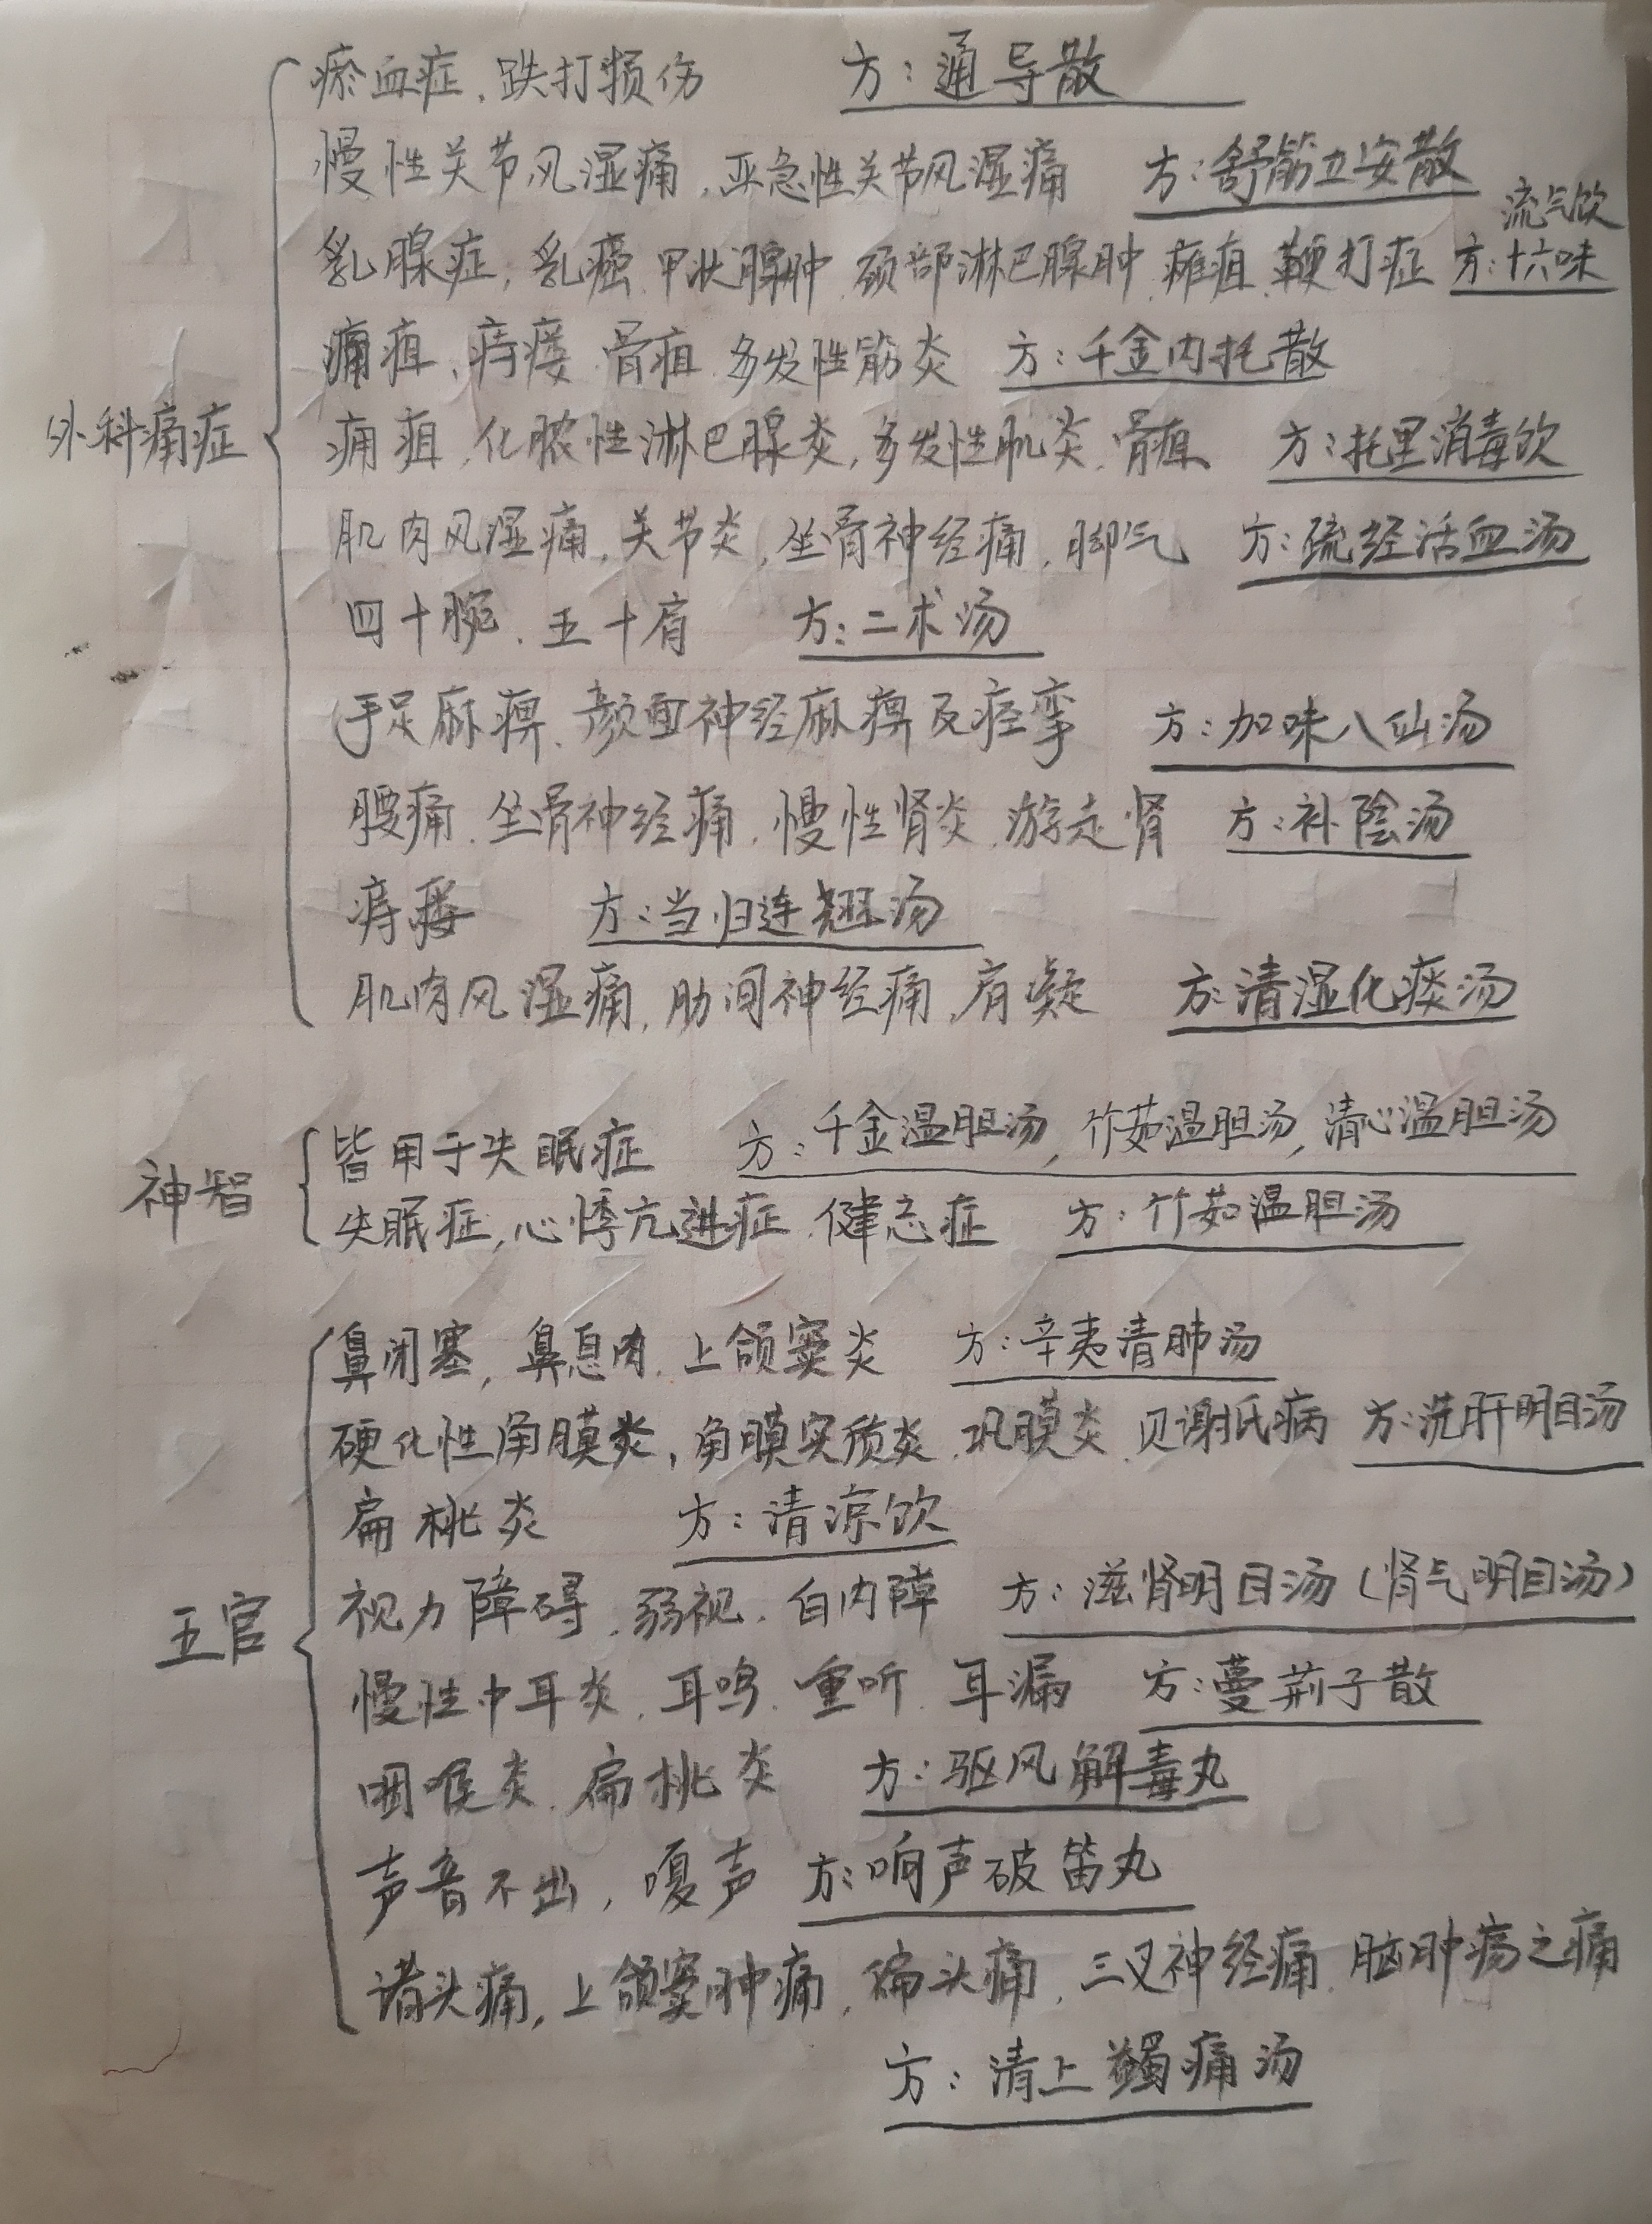 瘀血症、跌打损伤 方：通导散
慢性关节风湿痛、亚急性关节风湿痛 方：舒筋立安散
流气饮
乳腺症，乳癌、甲状腺肿、颈部淋巴腺肿、瘫疽、鞭打症 方：十六味
外科痛症
痈疽、痔瘘、骨疽、多发性筋炎 方：千金内托散
痈疽、化脓性淋巴腺炎，多发性肌炎、骨疽 方：托里消毒饮
肌肉风湿痛，关节炎，坐骨神经痛、脚气 方：疏经活血汤
四十腕、五十肩 方：二术汤
手足麻痹、颜面神经麻痹及痉挛 方：加味八仙汤
腰痛、坐骨神经痛、慢性肾炎、游走肾 方：补阴汤
痔瘘 方：当归连翘汤
肌肉风湿痛，肋间神经痛、肩凝 方：清湿化痰汤
神智
皆用于失眠症 方：千金温胆汤，竹茹温胆汤，清心温胆汤
失眠症，心悸亢进症、健忘症 方：竹茹温胆汤
五官
鼻闭塞，鼻息肉、上颌窦炎 方：辛夷清肺汤
硬化性角膜炎，角膜实质炎、巩膜炎、贝谢抵病 方：洗肝明目汤
扁桃炎 方：清凉饮
视力障碍、弱视、白内障 方：滋肾明目汤（肾气明目汤）
慢性中耳炎、耳鸣、重听、耳漏 方：蔓荆子散
咽喉炎、扁桃炎 方：驱风解毒丸
声音不出，嘎声 方：响声破笛丸
诸头痛，上颌窦肿痛，偏头痛，三叉神经痛、脑肿疡之痛
方：清上蠲痛汤